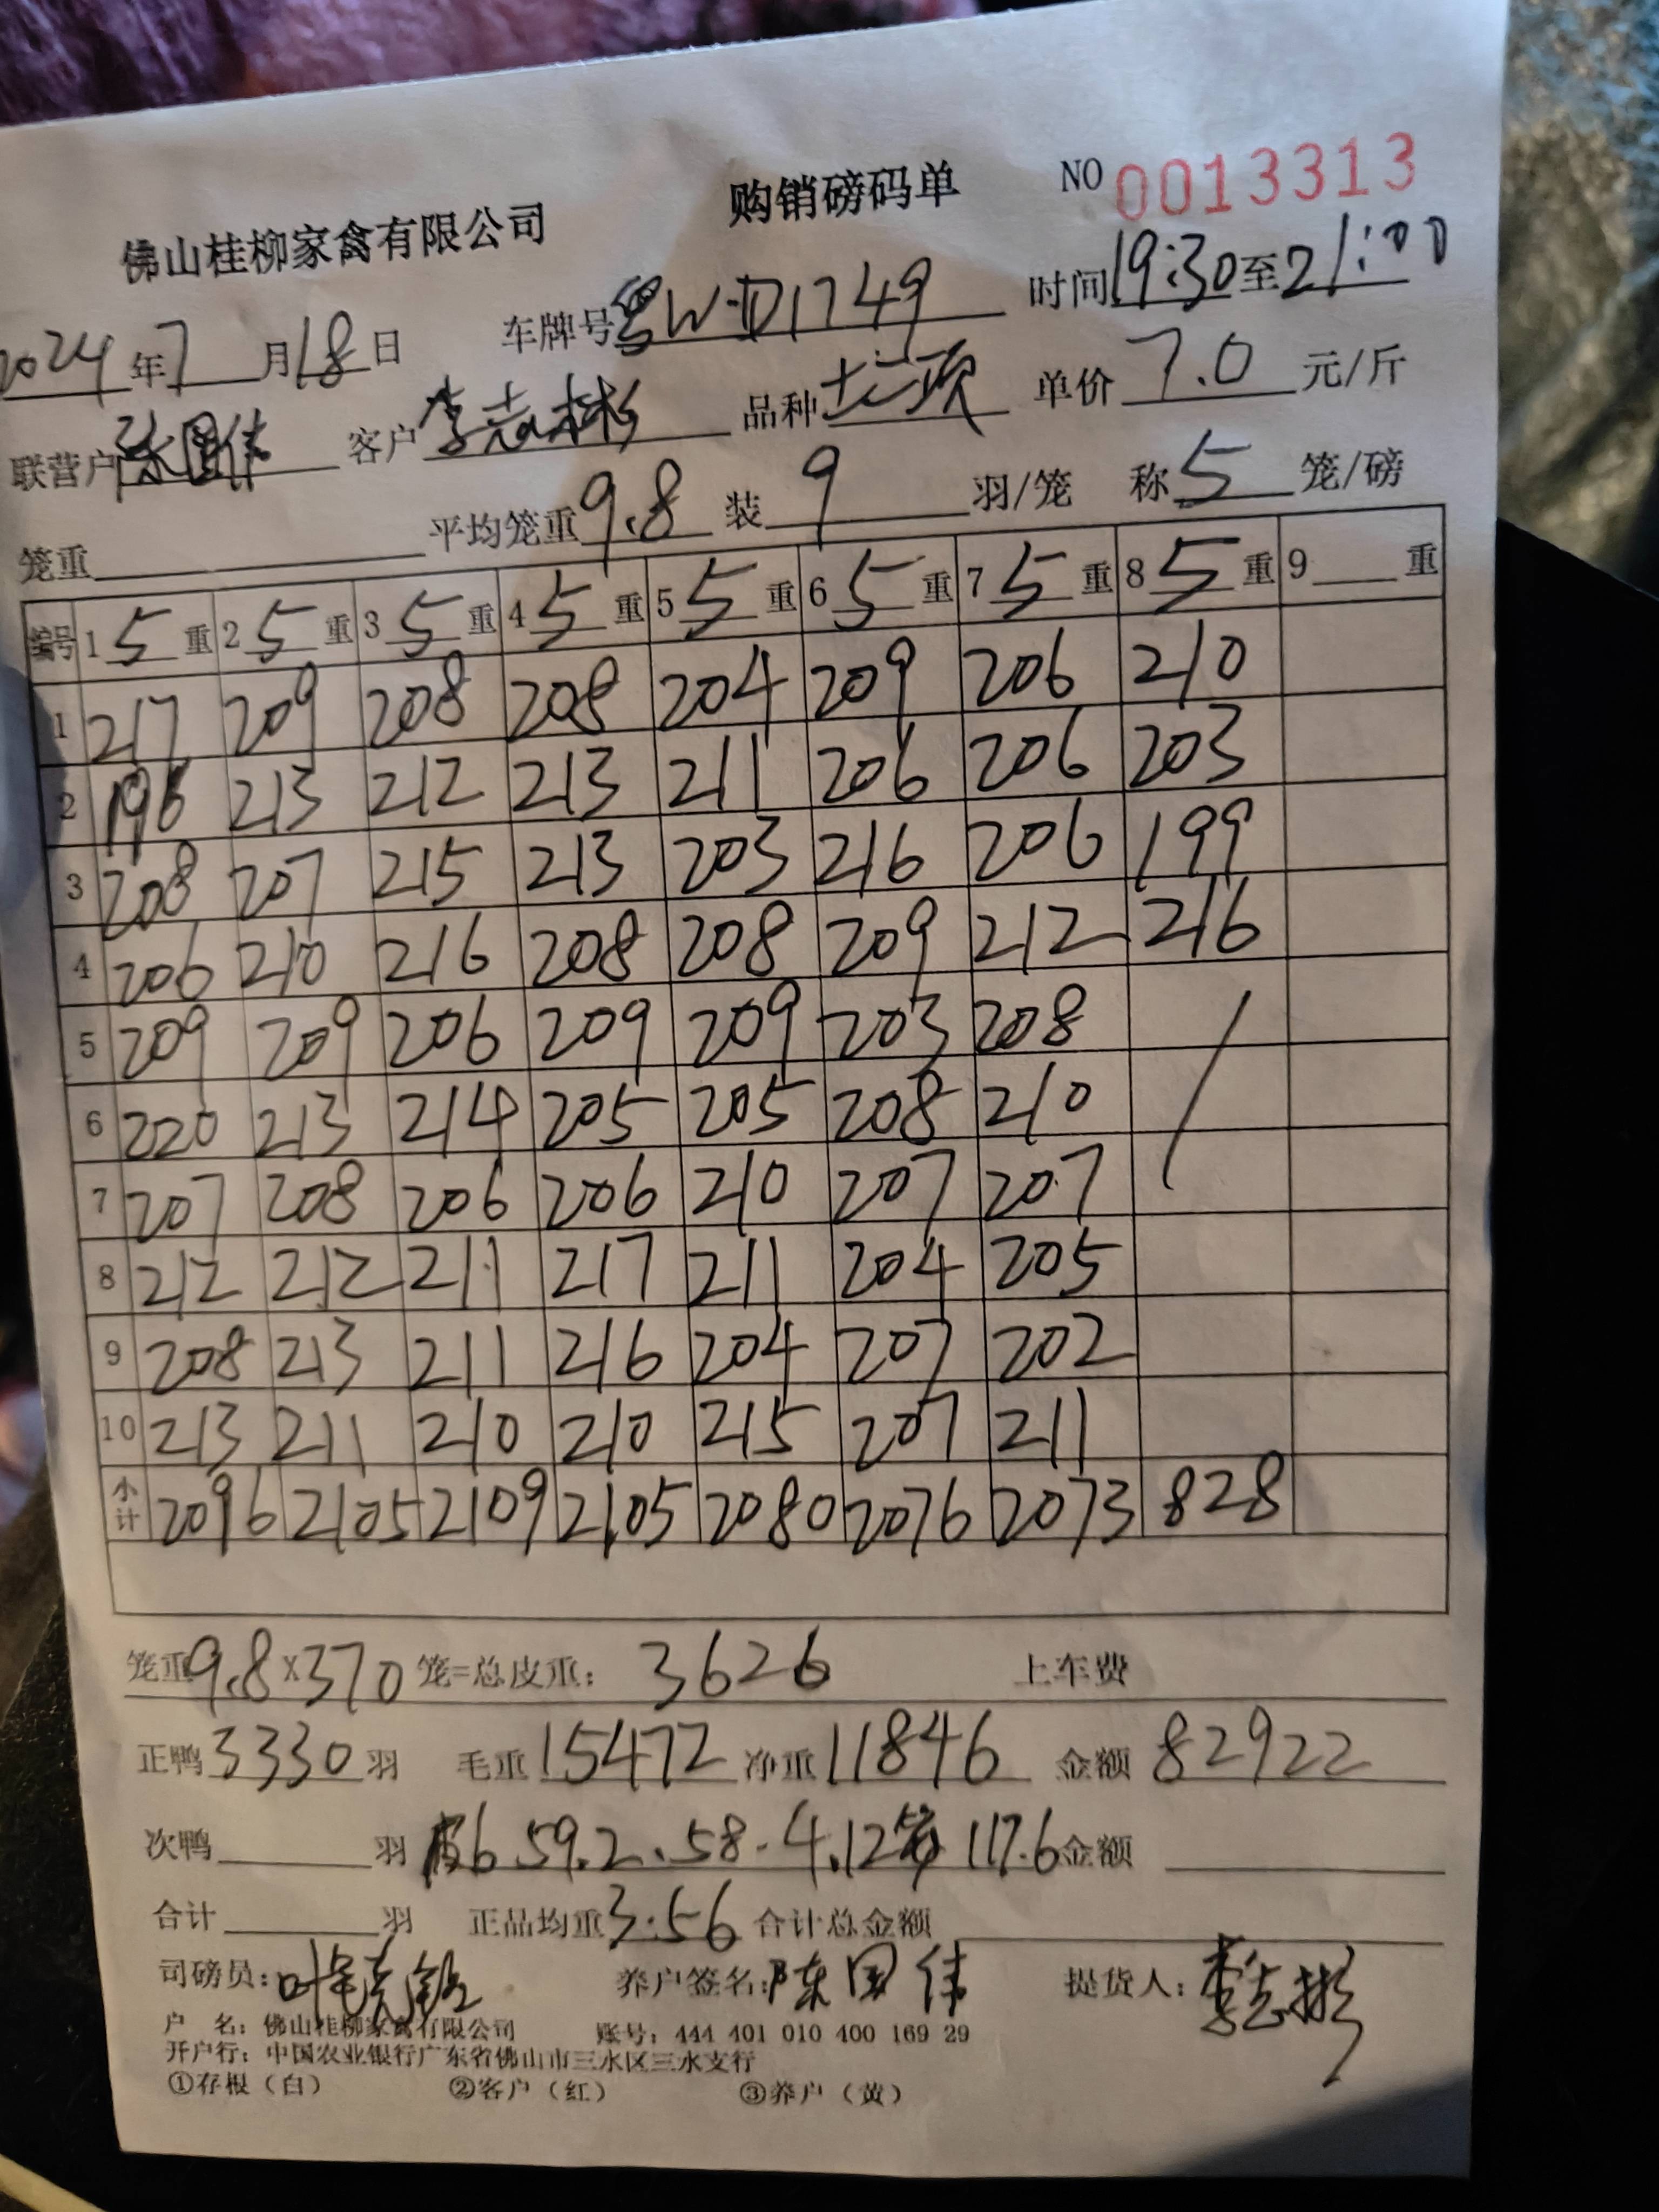 购销磅码单 NO 0013313
佛山桂柳家禽有限公司
2024年7月18日 车牌号粤W·D1749 时间19:30至21:00
联营户陈国伟 客户李志彬 品种 单价7.0元/斤
笼重 平均笼重9.8 装9羽/笼 称5笼/磅
编号 1 5 重 2 5 重 3 5 重 4 5 重 5 5 重 6 5 重 7 5 重 8 5 重 9 重
1 217 209 208 208 204 209 206 210
2 196 213 212 213 211 206 206 203
3 208 207 215 213 203 216 206 199
4 206 210 216 208 208 209 212 216
5 209 209 206 209 209 203 208
6 220 213 214 205 205 208 210
7 207 208 206 206 210 207 207
8 212 212 211 217 211 204 205
9 208 213 211 216 204 207 202
10 213 211 210 210 215 207 211
小计 2096 2105 2109 2105 2080 2076 2073 828
笼重9.8×370笼=总皮重: 3626 上车费
正鸭3330羽 毛重15472 净重11846 金额82922
次鸭 羽 6 59.2.58-4.12 117.6金额
合计 羽 正品均重3.56 合计总金额
司磅员: 养户签名:陈国伟 提货人:李志彬
户 名: 佛山桂柳家禽有限公司 账号: 444 401 010 400 169 29
开户行: 中国农业银行广东省佛山市三水区三水支行
①存根(白) ②客户(红) ③养户(黄)